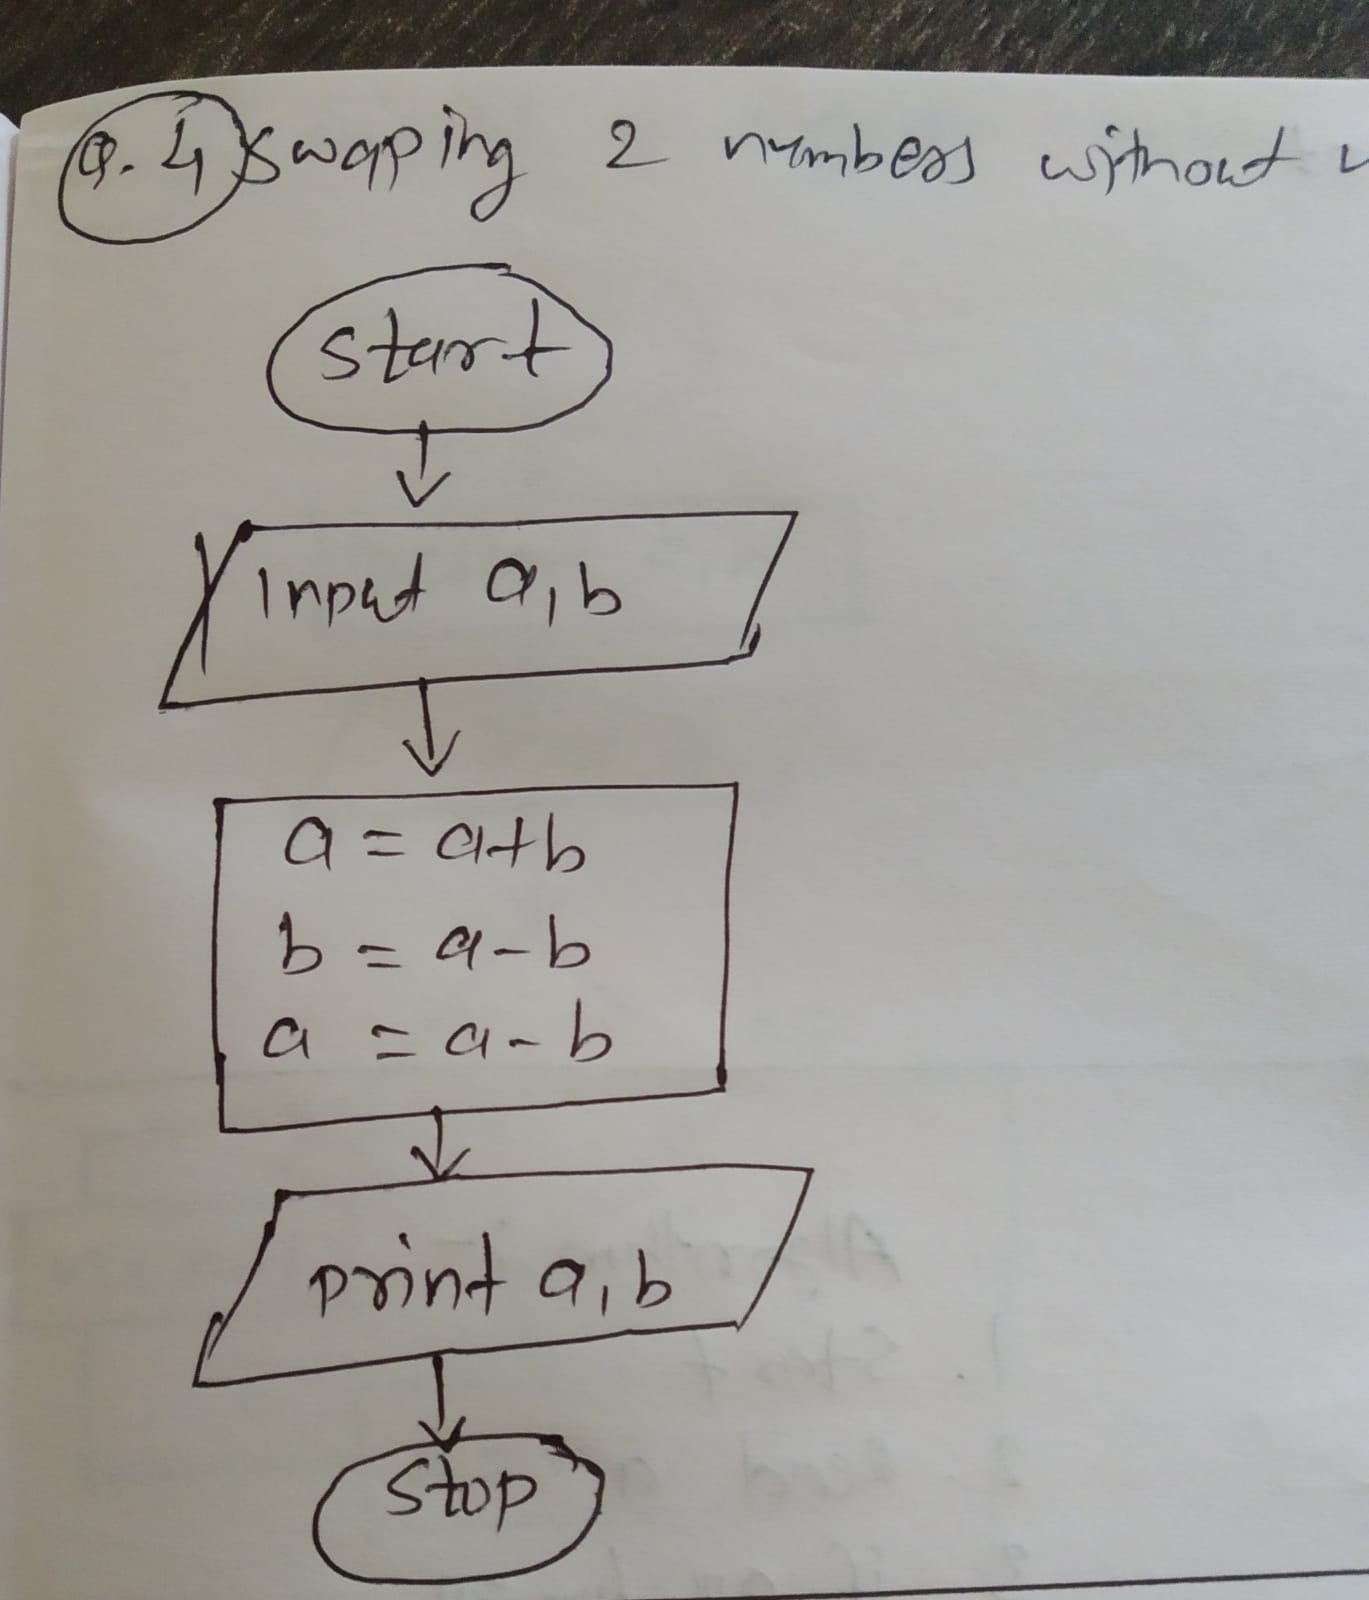 Q.4 Swaping 2 numbers without
Start
Input a, b
a = a+b
b = a-b
a = a-b
print a, b
Stop